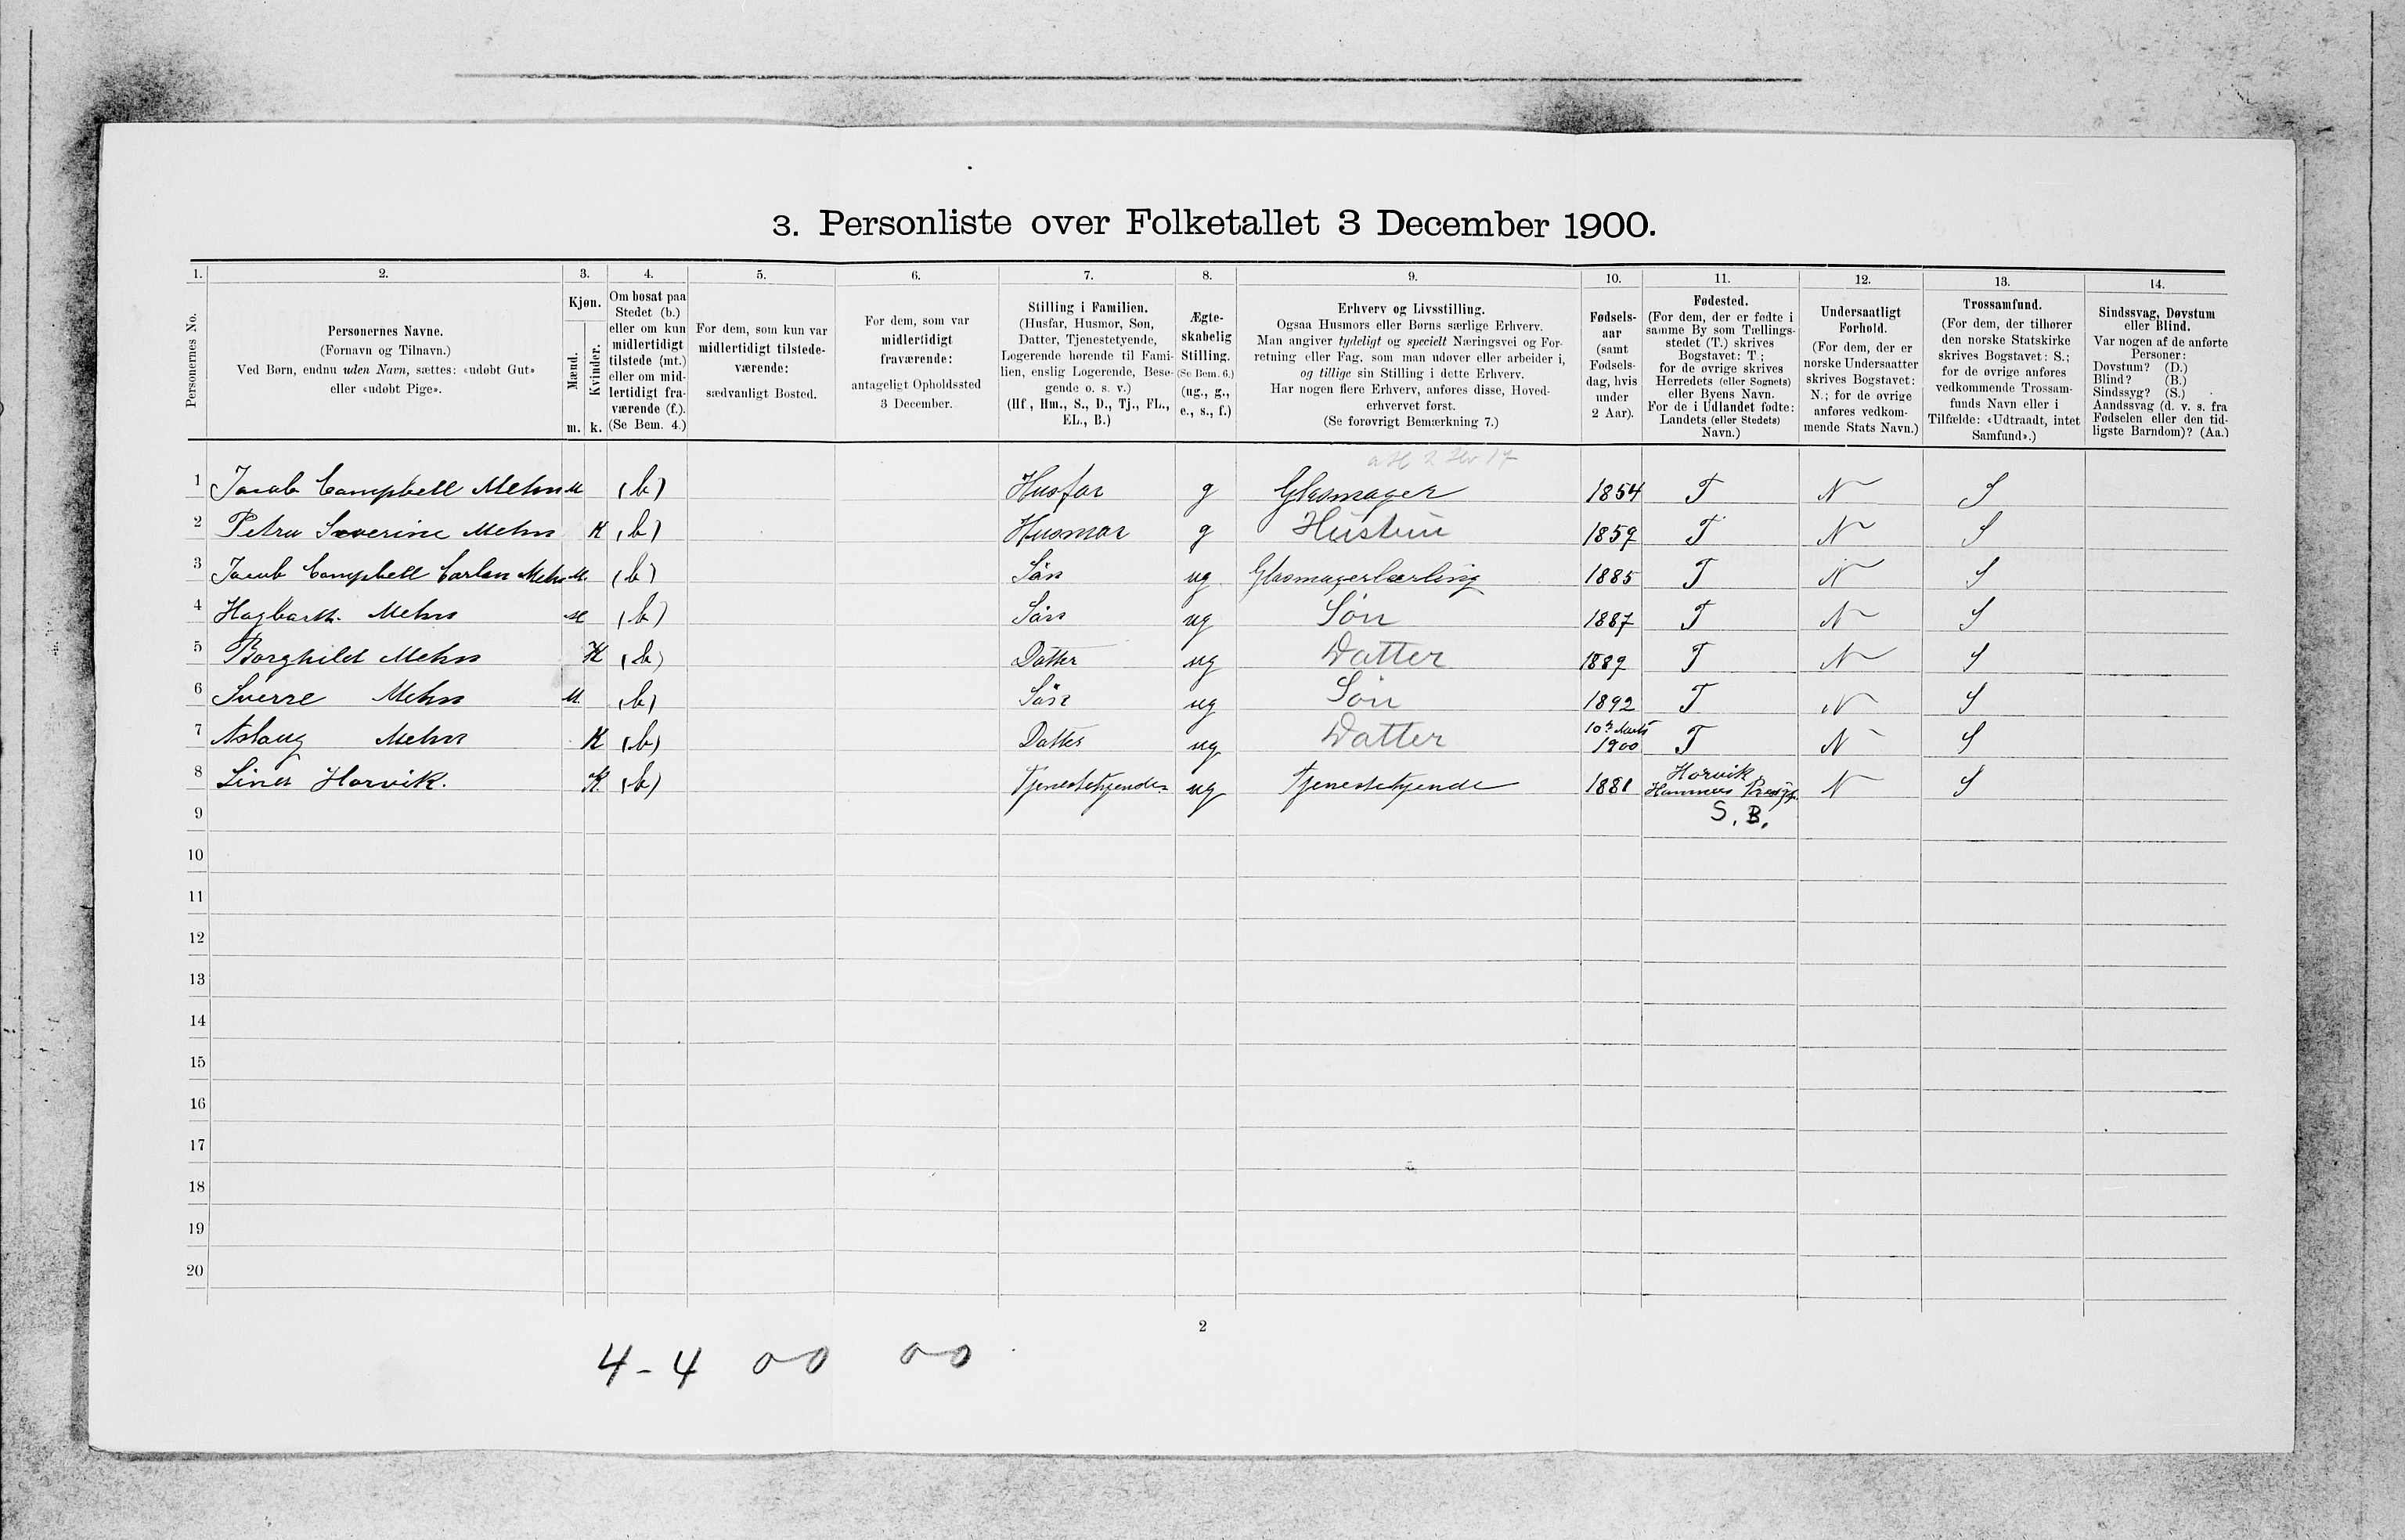 3. Personliste over Folketallet 3 December 1900.
1. 2. 3. 4. 5. 6. 7. 8. 9. 10. 11. 12. 13. 14.
Personernes No.
Personernes Navne.
(Fornavn og Tilnavn.)
Ved Børn, endnu uden Navn, sættes: «udøbt Gut»
eller «udøbt Pige».
Kjøn.
Mænd.
Kvinder.
m. k.
Om bosat paa
Stedet (b.)
eller om kun
midlertidigt
tilstede (mt.)
eller om mid-
lertidigt fra-
værende (f.).
(Se Bem. 4.)
For dem, som kun var
midlertidigt tilstede-
værende:
sædvanligt Bosted.
For dem, som var
midlertidigt
fraværende:
antageligt Opholdssted
3 December.
Stilling i Familien.
(Husfar, Husmor, Søn,
Datter, Tjenestetyende,
Logerende hørende til Fami-
lien, enslig Logerende, Bese-
gende o. s. v.)
(Hf., Hm., S., D., Tj., FL.,
EL., B.)
Ægte-
skabelig
Stilling.
(Se Bem. 6.)
(ug., g.,
e., s., f.)
Erhverv og Livsstilling.
Ogsaa Husmors eller Børns særlige Erhverv.
Man angiver tydeligt og specielt Næringsvei og For-
retning eller Fag, som man udøver eller arbeider i,
og tillige sin Stilling i dette Erhverv.
Har nogen flere Erhverv, anføres disse, Hoved-
erhvervet først.
(Se forøvrigt Bemærkning 7.)
Fødsels-
aar
(samt
Fødsels-
dag, hvis
under
2 Aar).
Fødested.
(For dem, der er fødte i
samme By som Tællings-
stedet (T.) skrives
Bogstavet: T;
for de øvrige skrives
Herredets (eller Sognets)
eller Byens Navn.
For de i Udlandet fødte:
Landets (eller Stedets)
Navn.)
Undersaatligt
Forhold.
(For dem, der er
norske Undersaatter
skrives Bogstavet:
N.; for de øvrige
anføres vedkom-
mende Stats Navn.)
Trossamfund.
(For dem, der tilhører
den norske Statskirke
skrives Bogstavet: S.;
for de øvrige anføres
vedkommende Trossam-
funds Navn eller i
Tilfælde: «Udtraadt, intet
Samfund».)
Sindssvag, Døvstum
eller Blind.
Var nogen af de anførte
Personer:
Døvstum? (D.)
Blind? (B.)
Sindssyg? (S.)
Aandssvag (d. v. s. fra
Fødselen eller den tid-
ligste Barndom)? (Aa.)
1 Jacob Campbell Mehn M (b) Husfar g Glasmager 1854 T N S
2 Petra Severine Mehn K (b) Husmor g Hustru 1859 T N S
3 Jacob Campbell Carlan Mehn M. (b) Sön ug Glasmagerlærling 1885 T N S
4 Hagbarth. Mehn M (b) Sön ug Søn 1887 T N S
5 Borghild Mehn K (b) Datter ug Datter 1889 T N S
6 Sverre Mehn M (b) Sön ug Søn 1892 T N S
7 Aslaug Mehn K (b) Datter ug Datter 10de Marts 1900 T N S
8 Lina Horvik. K (b) Tjenestetyende ug Tjenestetyende 1881 Horvik N S
S. B.
9
10
11
12
13
14
15
16
17
18
19
20
2
4-4 00 00